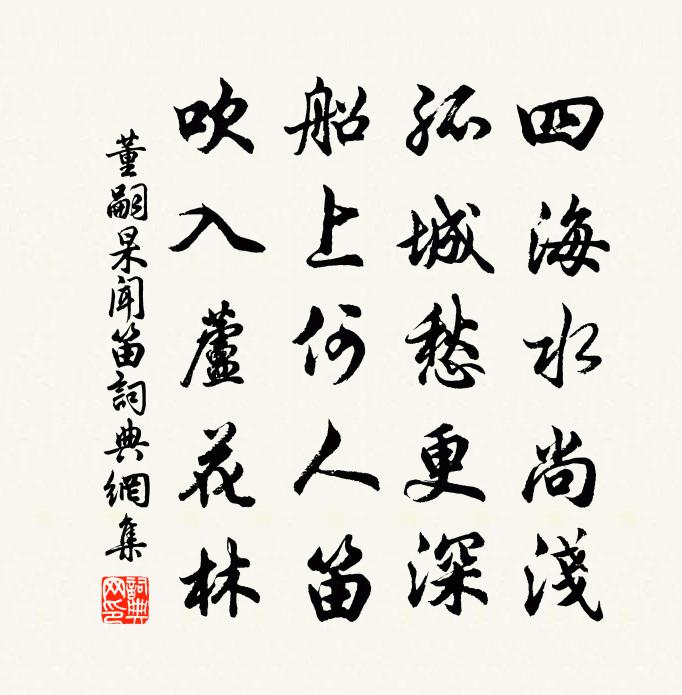 四海水尚淺
孤城愁更深
船上何人笛
吹入蘆花林
董嗣杲聞笛詞典網集
詞典網印